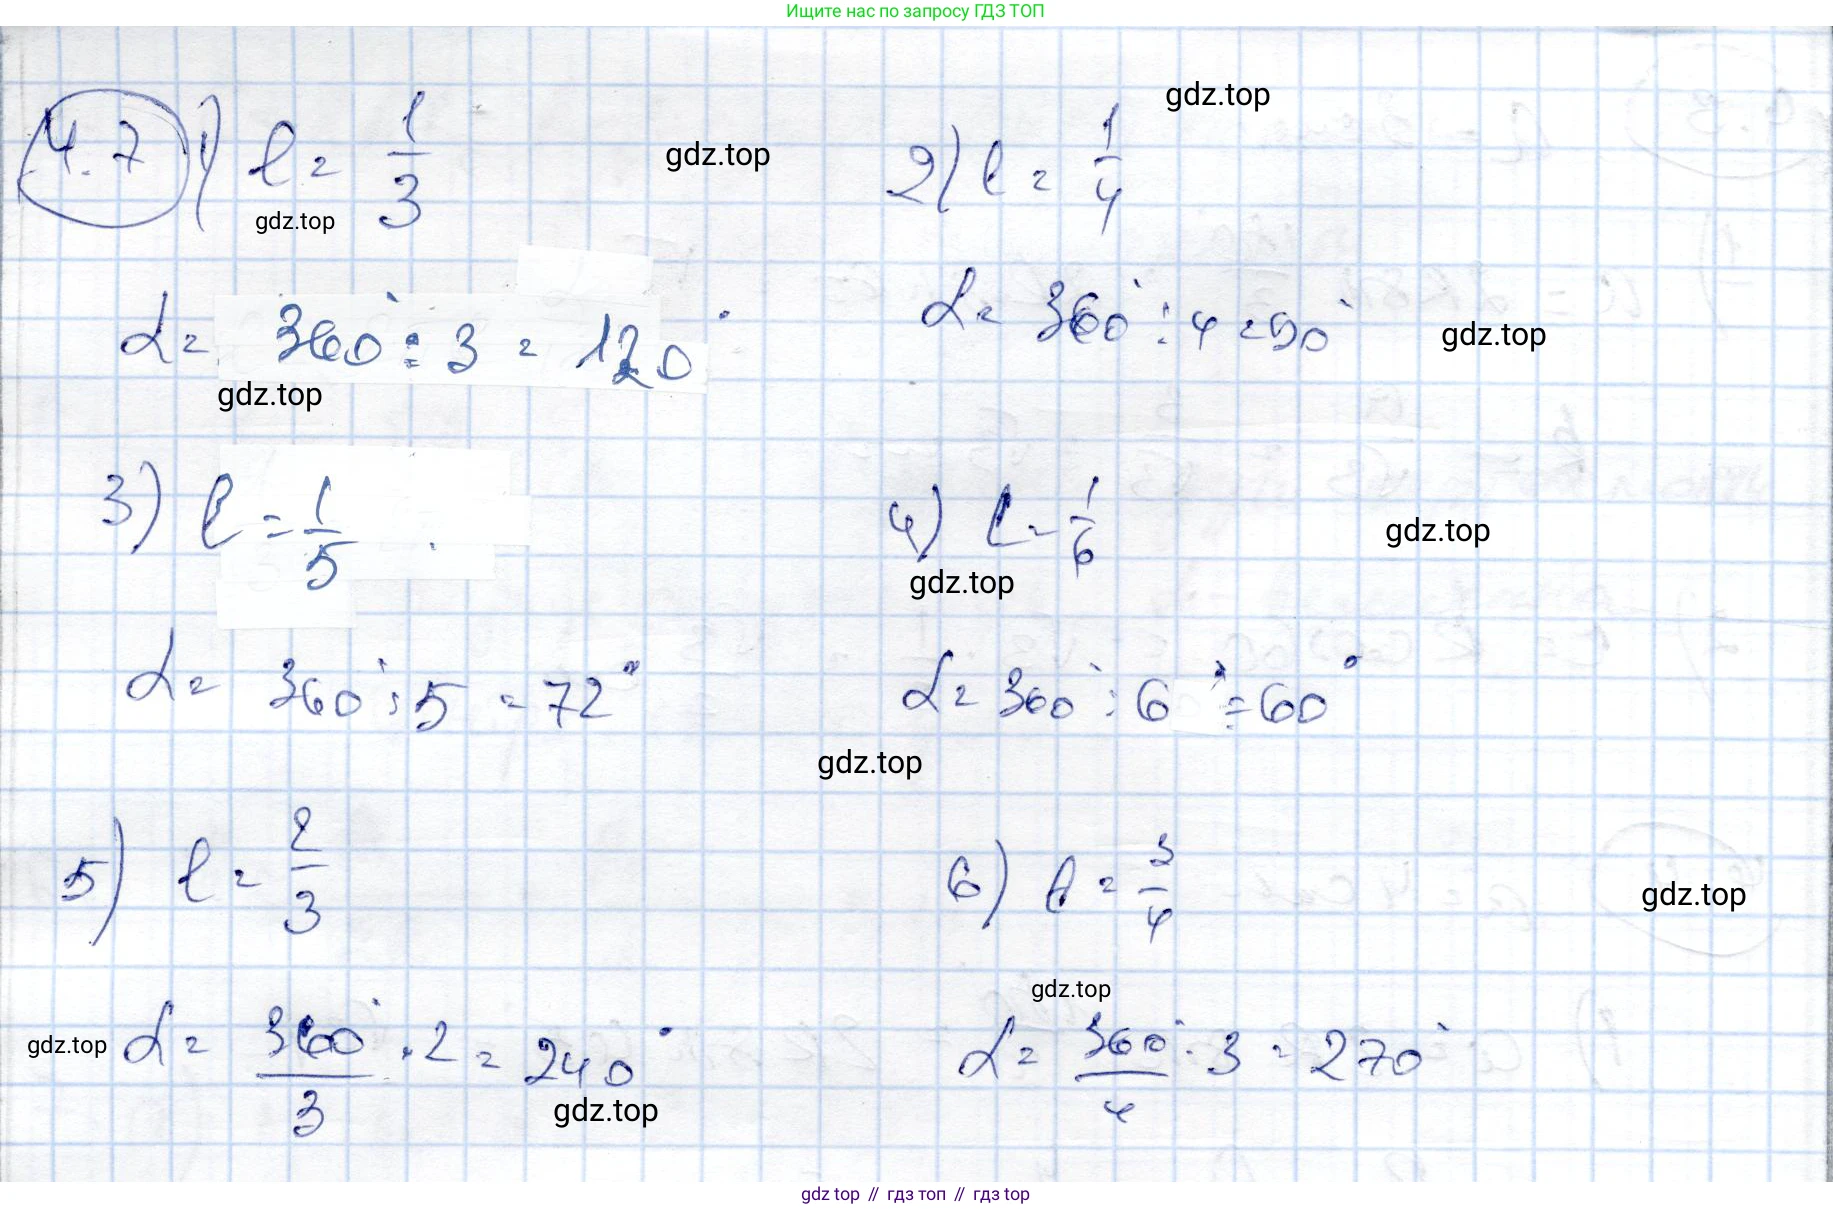 Ищите нас по запросу ГДЗ ТОП
gdz.top
4.7 1) l = 1/3
gdz.top
2) l = 1/4
gdz.top
α = 360° : 3 = 120°
α = 360° : 4 = 90°
gdz.top
gdz.top
3) l = 1/5
4) l = 1/6
gdz.top
gdz.top
α = 360° : 5 = 72°
α = 360° : 6 = 60°
gdz.top
5) l = 2/3
6) l = 3/4
gdz.top
gdz.top
gdz.top
α = 360°/3 · 2 = 240°
α = 360°/4 · 3 = 270°
gdz.top
gdz top // гдз топ // гдз top